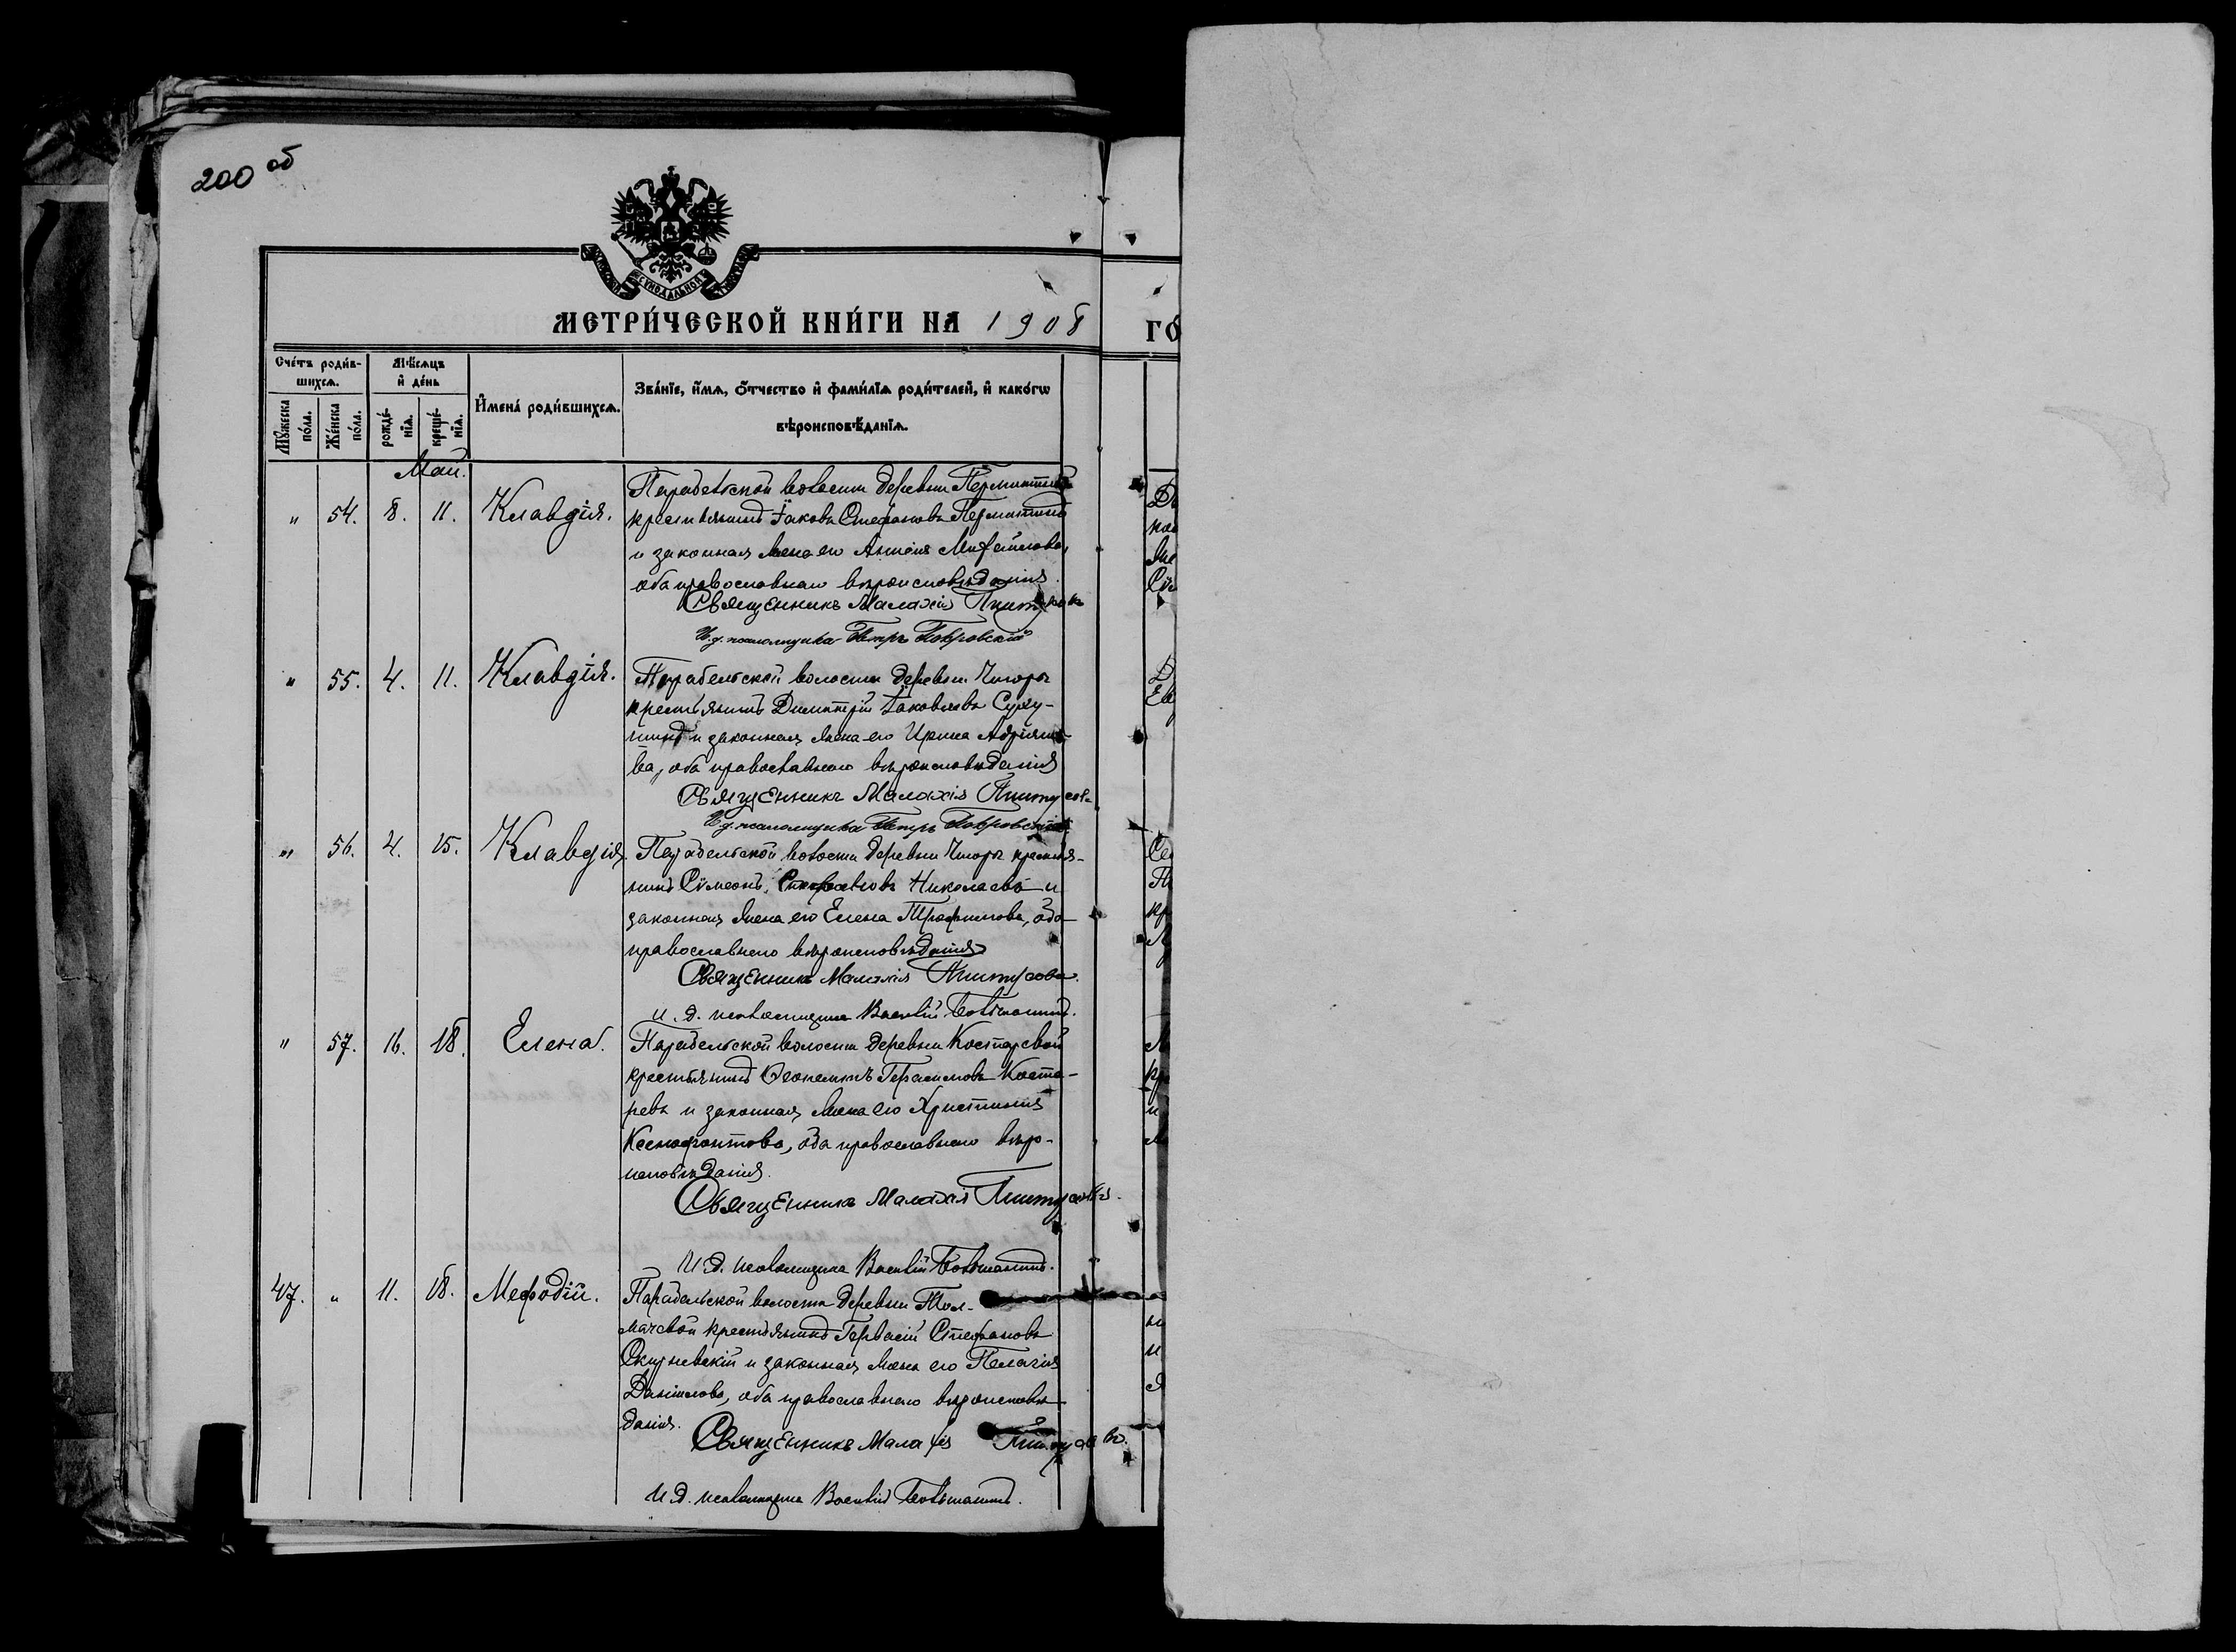 200 об
МЕТРИ́ЧЕСКОЙ КНИ́ГИ НА 1908
ГО
Сче́тъ роди́в-
шихсѧ.
Мѣ́сѧцъ
и҆ де́нь
И҆мена́ роди́вшихсѧ.
Зва́нїе, и҆́мѧ, ѻ҆́тчество и҆ фами́лїѧ роди́телей, и҆ како́гѡ
вѣроисповѣ́данїѧ.
Мꙋ́жеска
по́ла.
Же́нска
по́ла.
рожде́-
нїѧ.
креще́-
нїѧ.
Май.
" 54. 8. 11. Клавдія.
Парабельской волости деревни
крестьянинъ Іаковъ Стефановъ Пермитинъ
и законная жена его Михаилова,
оба православнаго вѣроисповѣданія.
Священникъ Малахія
И.д. псаломщика Петръ Покровскій
" 55. 4. 11. Клавдія.
Парабельской волости деревни Чигоръ
крестьянинъ Димитрій Іаковлевъ Суху-
шинъ и законная жена его Ирина Адріяно-
ва, оба православнаго вѣроисповѣданія
Священникъ Малахія
И.д. псаломщика Петръ Покровскій
" 56. 4. 15. Клавдія.
Парабельской волости деревни Чигоръ крестья-
нинъ Сѵмеонъ Стефановъ Николаевъ и
законная жена его Елена Трофимова, оба
православнаго вѣроисповѣданія
Священникъ Малахія
И. д. псаломщика Василій
" 57. 16. 18. Елена.
Парабельской волости деревни Костаревой
крестьянинъ Герасимовъ Коста-
ревъ и законная жена его Христинія
Ксенофонтова, оба православнаго вѣро-
исповѣданія.
Священникъ Малахія
И.д. псаломщика Василій
47. " 11. 18. Меѳодій.
Парабельской волости деревни Тол-
мачевой крестьянинъ Гервасій Стефановъ
Окуневскій и законная жена его Пелагія
Даніилова, оба православнаго вѣроисповѣ-
данія.
Священникъ Малахія
И.д. псаломщика Василій